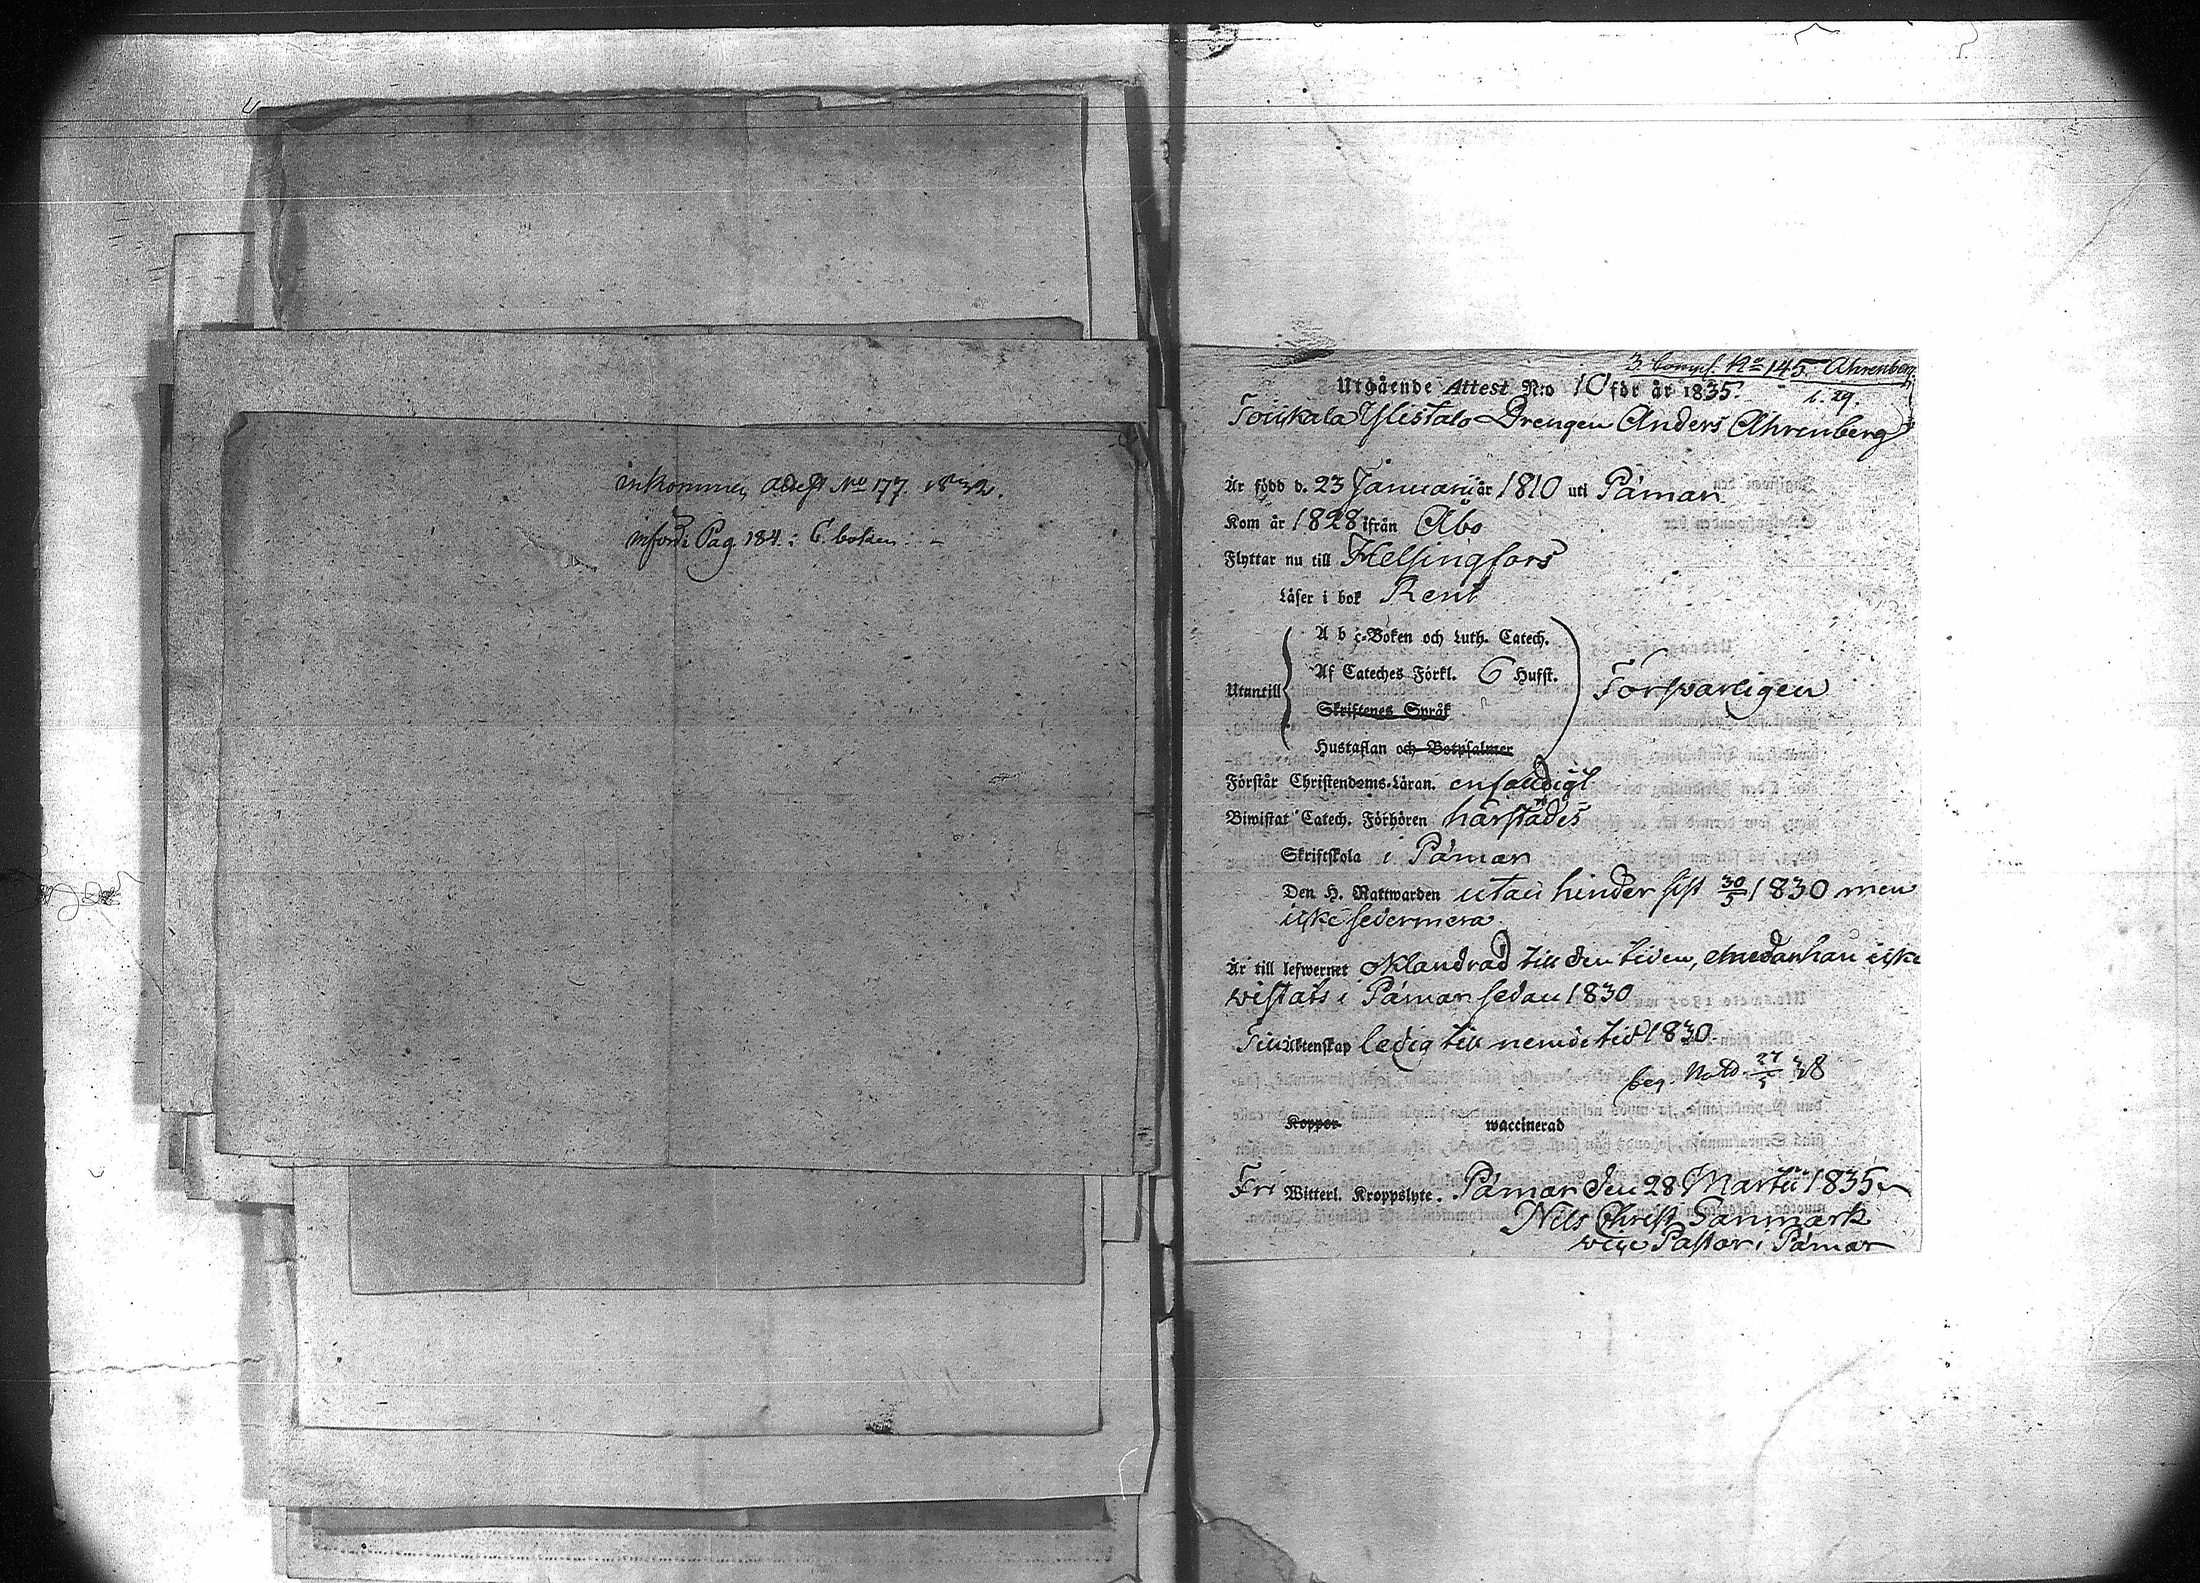 inkommen attest No 177. 1832.
införd Pag 184. i C. boken. –
3. Comp. No 145. Ahrenberg.
Utgående Attest N:o 10 för år 1835.
Toukala Ylistalo Drengen Anders Ahrenberg
Är född d. 23 Januarii år 1810 uti Pämar
Kom år 1828 ifrån Åbo
Flyttar nu till Helsingfors
Läser i bok Rent
A b c-Boken och Luth. Catech.
Utantill Af Cateches Förkl. 6 Hufst. Försvarligen
Skriftenes Språk
Hustaflan och Botpsalmer
Förstår Christendoms-Läran. enfaldigt
Biwistat Catech. Förhören härstädes
Skriftskola i Pämar
Den H. Nattwarden utan hinder sist 30/5 1830 men
icke sedermera
Är till lefwernet oklandrad till den tiden, emedan han icke
vistats i Pämar sedan 1830
Till Äktenskap ledig till nemde tid 1830
beg. Nattv. 27/5 38
Koppor waccinerad
Fri Witterl. Kroppslyte. Pämar den 28 Martii 1835
Nils Christ Sanmark
vice Pastor i Pämar